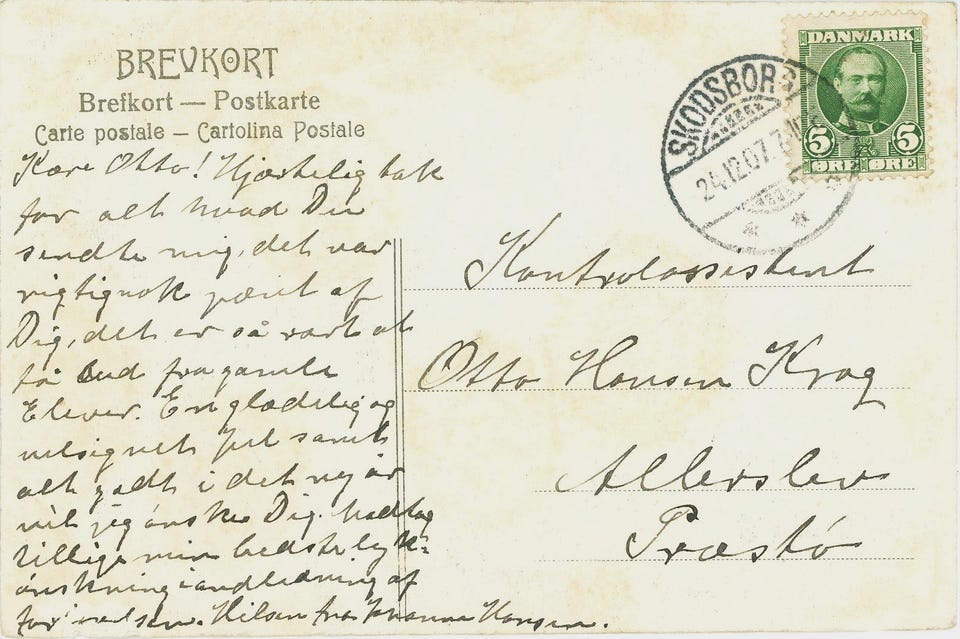 BREVKORT
Brefkort — Postkarte
Carte postale — Cartolina Postale
DANMARK
5 5
ØRE ØRE
SKODSBORG
24.12.07.7
Kære Otto! Hjærtelig tak
for alt hvad Du
sendte mig, det var
rigtignok pænt af
Dig, det er så rart at
få bud fra gamle
Elever. En glædelig og
velsignet Jul samt
alt godt i det ny år
vil jeg ønske Dig. Modtag
tillige min bedste lyk=
ønskning i andledning af
forlovelsen. Hilsen fra Johanne Hansen.
Kontrolassistent
Otto Hansen Krog
Allerslev
Præstö